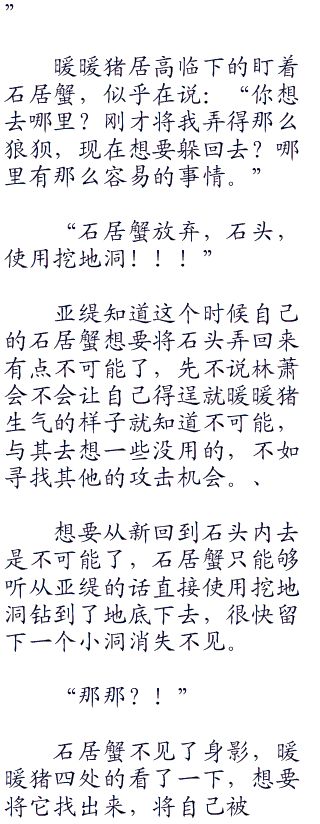 ”
暖暖猪居高临下的盯着
石居蟹，似乎在说：“你想
去哪里？刚才将我弄得那么
狼狈，现在想要躲回去？哪
里有那么容易的事情。”
“石居蟹放弃，石头，
使用挖地洞！！！”
亚缇知道这个时候自己
的石居蟹想要将石头弄回来
有点不可能了，先不说林萧
会不会让自己得逞就暖暖猪
生气的样子就知道不可能，
与其去想一些没用的，不如
寻找其他的攻击机会。、
想要从新回到石头内去
是不可能了，石居蟹只能够
听从亚缇的话直接使用挖地
洞钻到了地底下去，很快留
下一个小洞消失不见。
“那那？！”
石居蟹不见了身影，暖
暖猪四处的看了一下，想要
将它找出来，将自己被